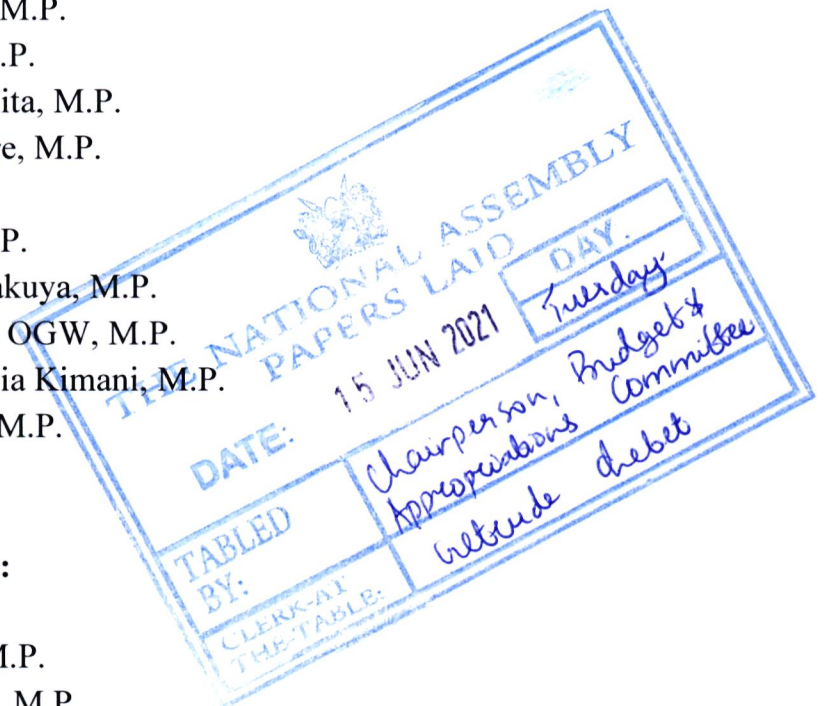 M.P.
.P.
ita, M.P.
e, M.P.
P.
akuya, M.P.
OGW, M.P.
ia Kimani, M.P.
M.P.
:
M.P.
, M.P.
THE NATIONAL ASSEMBLY
PAPERS LAID
DATE: 15 JUN 2021
DAY.
Tuesday
TABLED BY:
Chairperson, Budget &
Appropriations Committee
CLERK-AT
THE-TABLE:
Getrude Chebet